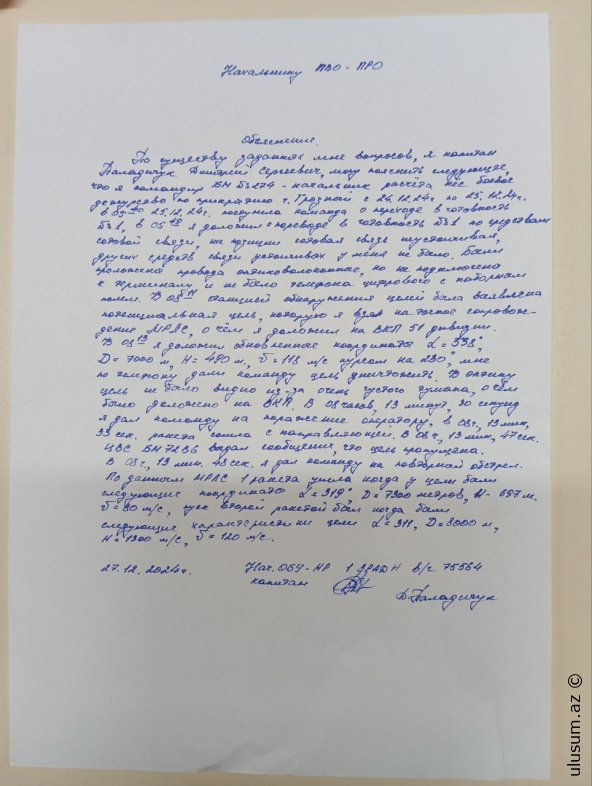 Начальнику ПВО - ПРО
Объяснение.
По существу заданных мне вопросов, я капитан
Паладичук Дмитрий Сергеевич, могу пояснить следующее,
что я командир БМ 73274 - начальник расчёта нёс боевое
дежурство по прикрытию г. Грозный с 24.12.24г. по 25.12.24г.
в 05:40 25.12.24г. поступила команда о переводе в готовность
№1, в 05:48 я доложил о переводе в готовность №1 по средствам
сотовой связи, на позиции сотовая связь неустойчивая,
других средств связи устойчивых у меня не было. Была
проложена провода оптоволоконная, но не подключена
к терминалу и не было телефона цифрового с наборным
полем. В 08:11 станцией обнаружения целей была выявлена
потенциальная цель, которую я взял на точное сопровож-
дение МРЛС, о чём я доложил на ВКП 51 дивизии.
В 08:13 я доложил обновленные координаты α = 338°,
D = 7000 м, H = 490 м, v = 118 м/с курсом на 230°, мне
по телефону дали команду цель уничтожить. В оптику
цель не было видно из-за очень густого тумана, о чём
было доложено на ВКП. В 08 часов, 13 минут, 30 секунд
я дал команду на поражение оператору, в 08ч, 13 мин,
33 сек. ракета сошла с направляющей. В 08ч, 13 мин, 47 сек.
ЦВС БМ 7236 выдал сообщение, что цель пропущена.
В 08ч, 13 мин. 48 сек. я дал команду на повторный обстрел.
По данным МРЛС 1 ракета ушла когда у цели были
следующие координаты α = 319°, D = 7300 метров, H - 697 м.
v = 80 м/с, пуск второй ракетой был когда были
следующие характеристики цели α = 311, D = 8000 м,
H = 1300 м/с, v = 120 м/с.
27.12.2024г. Нач. ОБУ-НР 1 ЗРАДН в/с 75564
капитан Д. Паладичук
ulusum.az ©